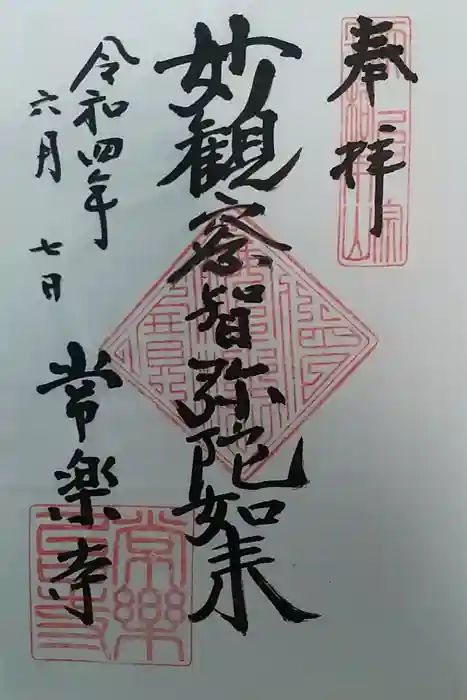 奉拝
妙観察智弥陀如来
令和四年
六月七日
常楽寺
常樂